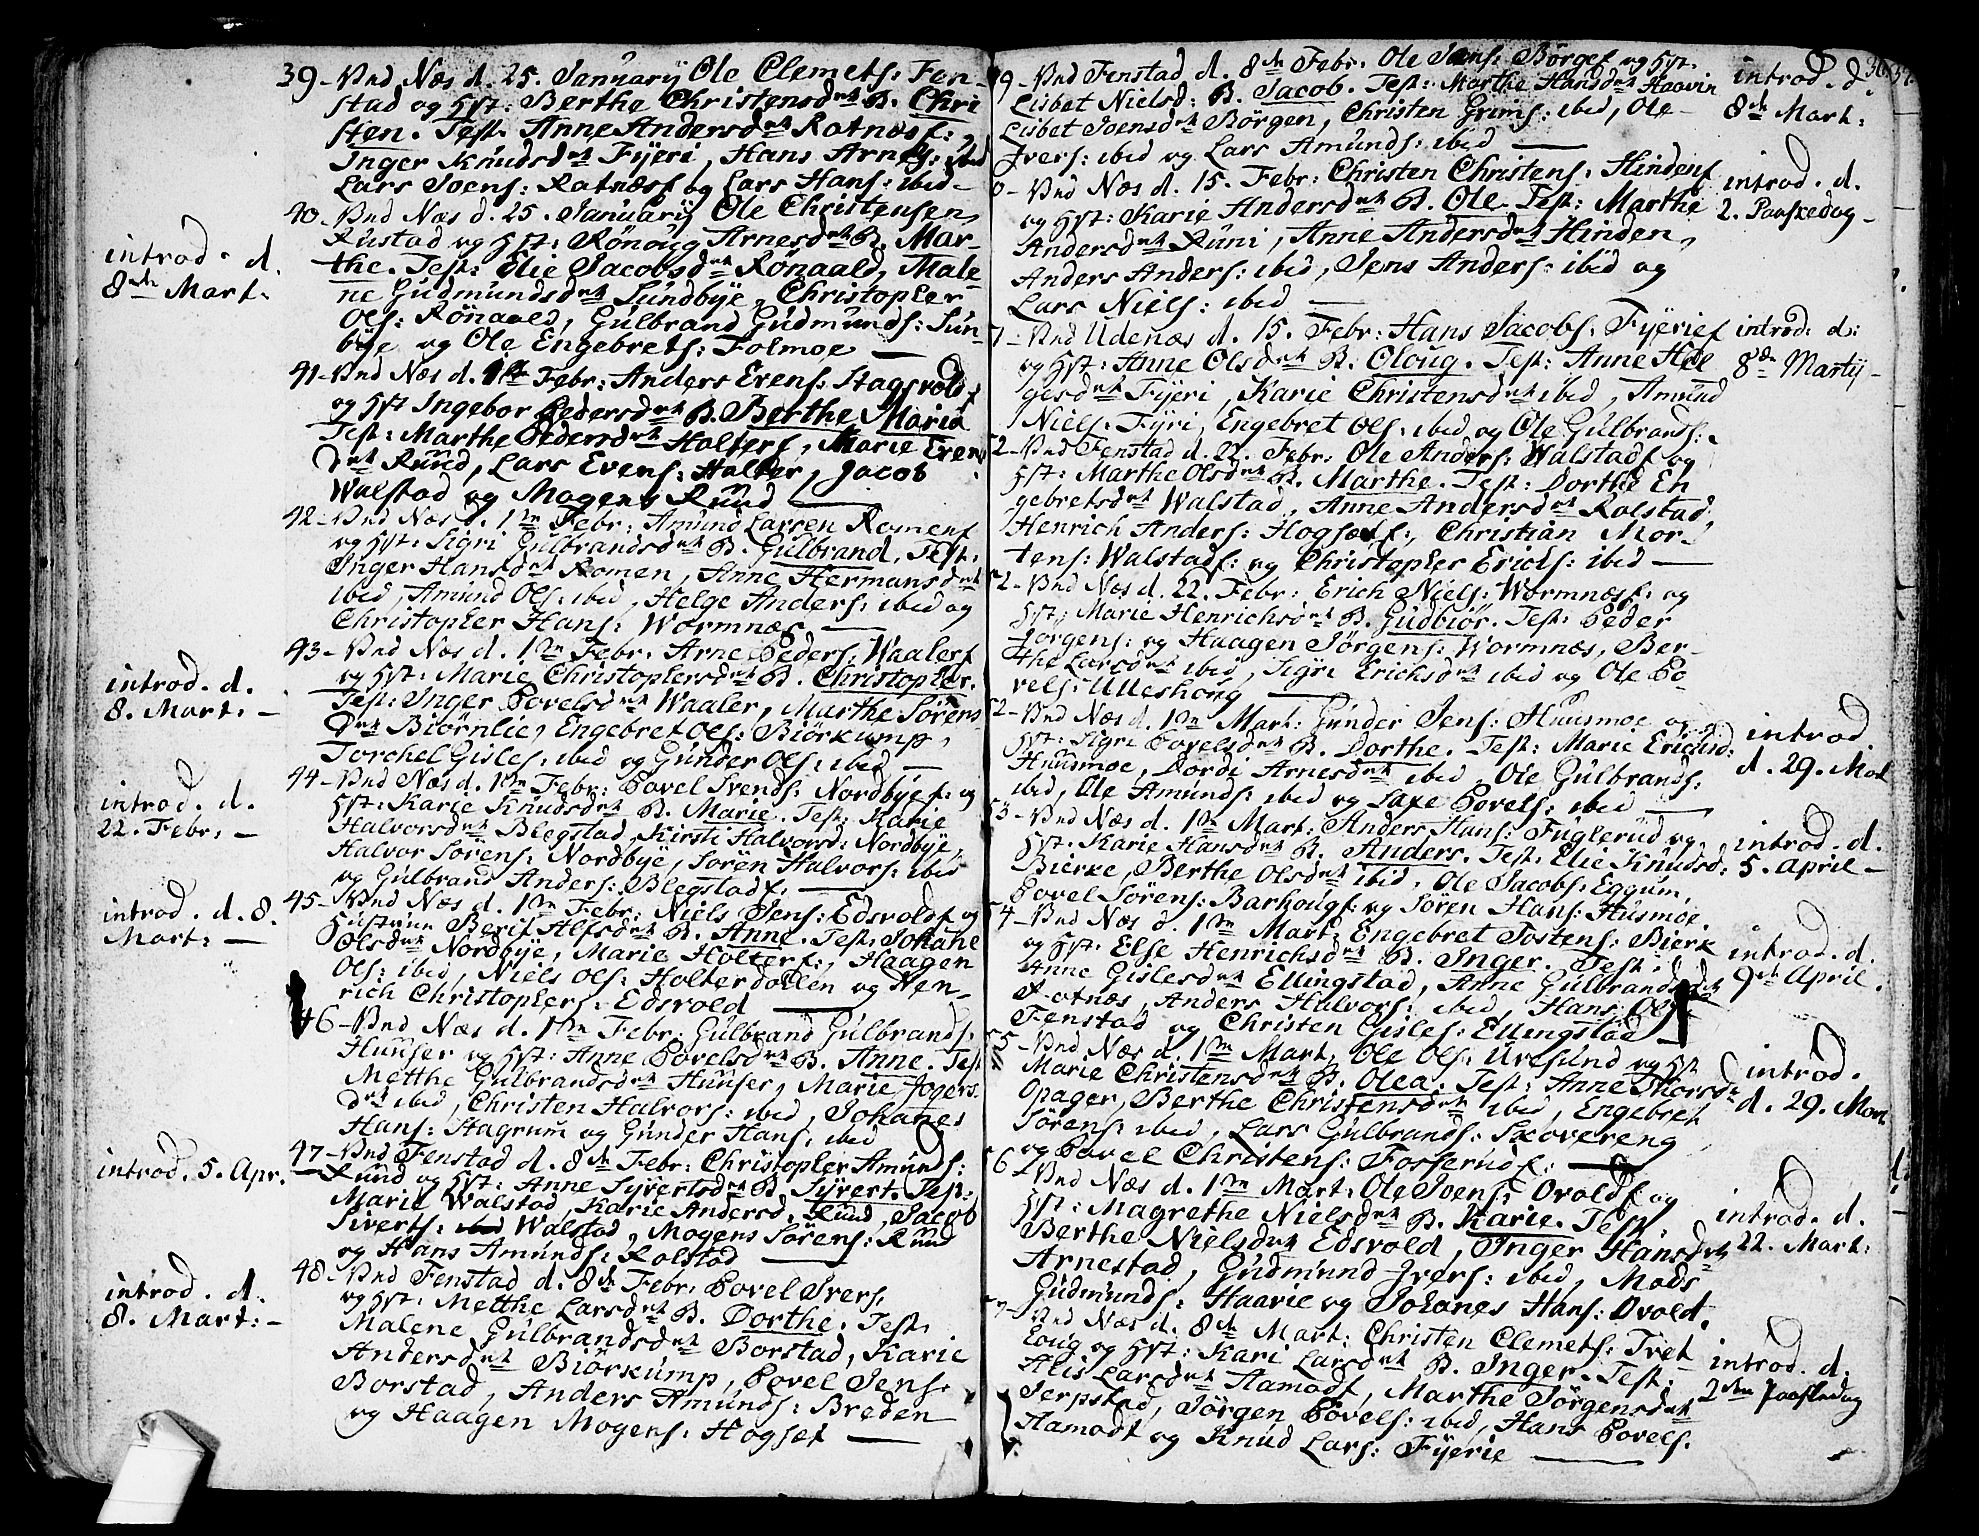 39 - Und Næs d. 25. Januarij Ole Clemets: Fen-
stad og Hst: Berthe Christensdatr B. Chri
sten. Test. Anne Andersdatr Ratnæs:
Inger Knudsdatr Fyeri, Hans Arnes: ibid
Lars Joens: Ratnæs og Lars Hans: ibid -
40 - Und Næs d. 25. Januarij Ole Christensen
Rustad og Hst: Rönoug Arnesdatr B. Mar-
the. Test: Elie Jacobsdatr Rönaald, Male
ne Gudmundsdatr Sundbye, Christopher
Ols: Rönaald, Gulbrand Gudmunds: Sun
bye og Ole Engebrets: Folmoe
introd. d.
8de Mart:
41 - Und Næs d. 1te Febr: Anders Evens: Hagsvold
og Hst Ingebor Pedersdatr B. Berthe Maria
Test: Marthe Pedersdatr Holters, Marie Evens
datr Rund, Lars Evens: Holter, Jacob
Walstad og Mogens Rund
42 - Und Næs d. 1te Febr: Amund Larsen Romens
og Hst: Sigri Gulbrandsdatr B. Gulbrand. Test:
Inger Hansdatr Romen, Anne Hermansdatr
ibid, Amund Ols: ibid, Helge Anders: ibid og
Christopher Hans: Wormnæs
43 - Und Næs d. 1te Febr: Arne Peders: Waalers
og Hst: Marie Christophersdatr B. Christopher.
Test: Inger Povelsdatr Waaler, Marthe Sörens
datr Biörnlie, Engebret Ols: Biörkump,
Torchel Gisles: ibid og Gunder Ols: ibid
introd. d.
8. Mart: -
44 - Und Næs d. 1te Febr: Povel Svends: Nordbye: og
Hst: Karie Knudsdatr B. Marie. Test: Karie
Halvorsdatr Blegstad, Kirsti Halvorsd: Nordbye,
Halvor Sörens: Nordbye, Sören Halvors: ibid
og Gulbrand Anders: Blegstad
introd. d.
22. Febr: -
45 - Und Næs d. 1te Febr: Niels Jens: Edsvold og
Hustrue Berit Alfsdatr B. Anne. Test: Johane
Olsdatr Nordbye, Marie Holter:, Haagen
Ols: ibid, Niels Ols: Holterdollen og Hen-
rich Christophers: Edsvold
introd. d. 8.
Mart: -
46 - Und Næs d. 1te Febr: Gulbrand Gulbrands:
Huuser og Hst: Anne Povelsdatr B. Anne. Test
Metthe Gulbrandsdatr Huuser, Marie Jogers
datr ibid, Christen Halvors: ibid, Johanes
Hans: Hagrum og Gunder Hans: ibid
47 - Und Fenstad d. 8de Febr: Christopher Amunds:
Rund og Hst: Anne Syvertsdatr B. Syvert. Test:
Marie Walstad, Karie Andersd. Rund, Jacob
Siverts: Walstad, Mogens Sörens: Rund
og Hans Amunds: Rolstad
introd. 5. Apr.
48 - Und Fenstad d. 8de Febr: Povel Ivers.
og Hst: Metthe Larsdatr B. Dorthe. Test.
Malene Gulbrandsdatr Borstad, Karie
Andersdatr Biörkump, Povel Jens:
Borstad, Anders Amunds: Breden
og Haagen Mogens: Hogset
introd. d.
8. Mart: -
9 - Und Fenstad d. 8de Febr: Ole Jens: Börges og Hst.
Lisbet Nielsd: B. Jacob. Test: Marthe Hansdatr Haavin
Lisbet Joensdatr Börgen, Christen Grims: ibid, Ole
Ivers: ibid og Lars Amunds: ibid
introd. d.
8de Mart:
0 - Und Næs d. 15. Febr: Christen Christens: Hindens
og Hst: Karie Andersdatr B. Ole. Test: Marthe
Andersdatr Runi, Anne Andersdatr Hinden,
Anders Anders: ibid, Jens Anders: ibid og
Lars Niels: ibid
introd. d.
2. Paaskedag -
- Und Udenæs d. 15. Febr: Hans Jacobs: Fyeries
og Hst: Anne Olsdatr B. Oloug. Test: Anne Hel
gesdatr Fyeri, Karie Christensdatr ibid, Amund
Niels. Fyri, Engebret Ols: ibid og Ole Gulbrands:
introd: d:
8de Martij -
2 - Und Fenstad d. 22. Febr: Ole Anders: Walstad og
Hst: Marthe Olsdatr B. Marthe. Test: Dorthe En
gebretsdatr Walstad, Anne Andersdatr Rolstad,
Henrich Anders: Hogset:, Christian Mor-
tens: Walstad: og Christopher Erichs: ibid
2 - Und Næs d. 22. Febr: Erich Niels: Wormnæs: og
Hst: Marie Henrichsdatr B. Gudbiör. Test: Peder
Jorgens: og Haagen Jörgens: Wormnæs, Ber-
the Larsdatr ibid, Sigri Erichsdatr ibid og Ole Po-
vels: Ulleshoug
2 - Und Næs d. 1te Mart: Gunder Jens: Huusmoe og
Hst: Sigri Povelsdatr B. Dorthe. Test: Marie Erichsd:
Huusmoe, Dordi Arnesdatr ibid, Ole Gulbrands:
ibid, Ole Amunds: ibid og Saxe Povels: ibid
introd.
d. 29. Mart
53 - Und Næs d. 1te Mart: Anders Hans: Fuglerud og
Hst. Karie Hansdatr B. Anders. Test: Elie Knudsd:
Bierke, Berthe Olsdatr ibid, Ole Jacobs: Eggum,
Povel Sörens: Barhoug: og Sören Hans: Husmoe.
introd. d.
5. April -
54 - Und Næs d. 1te Mart: Engebret Tostens: Bierk
og Hst. Else Henrichsdatr B. Inger. Test:
Anne Gislesdatr Ellingstad, Anne Gulbrandsdatr
Ratnæs, Anders Halvors: ibid, Hans Ols:
Fenstad og Christen Gisles: Ellingstad
introd. d.
9de April.
55 - Und Næs d. 1te Mart: Ole Ols: Uvesund og Hst
Marie Christensdatr B. Olea. Test: Anne Thorsdr
Opager, Berthe Christensdatr ibid, Engebret
Sörens: ibid, Lars Gulbrands: Skovereng
og Povel Christens: Fosserud:
introd.
d. 29. Mart
56 - Und Næs d. 1te Mart: Ole Joens: Ovold og
Hst: Magrethe Nielsdatr B. Karie. Test.
Berthe Nielsdatr Edsvold, Inger Hansdatr
Arnestad, Gudmund Ivers: ibid, Mads
Gudmunds: Haavie og Johanes Hans: Ovold.
introd. d.
22. Mart:
- Und Næs d. 8de Mart: Christen Clemets: Tvet
Eoug og Hst: Kari Larsdatr B. Inger. Test:
Alis Larsdatr Hamod, Marthe Jörgensdatr
Serpsted, Jörgen Povels: ibid, Hans Povels.
Hamodt og Knud Lars: Fyerie
introd. d:
2den Paaskedag